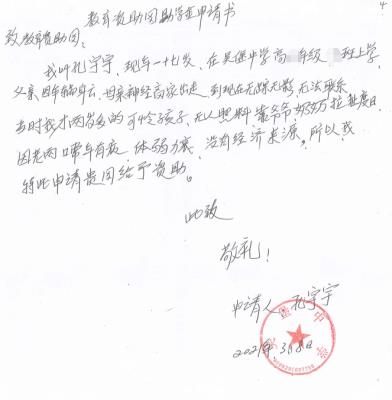 教育资助团助学金申请书
4
致教育资助团:
我叫孔宇宇,现年一十七岁,在吴堡中学高 年级 班上学,
父亲因车祸身亡,母亲神经高家出走,到现在无踪无影,无法联系
当时我才两岁多的可怜孩子,无人照料靠爷爷奶奶拉扯度日
因老两口常年有疾,体弱力衰,没有经济来源。所以我
特此申请贵团给予资助。
此致
敬礼!
申请人:孔宇宇
2021年.3月8日